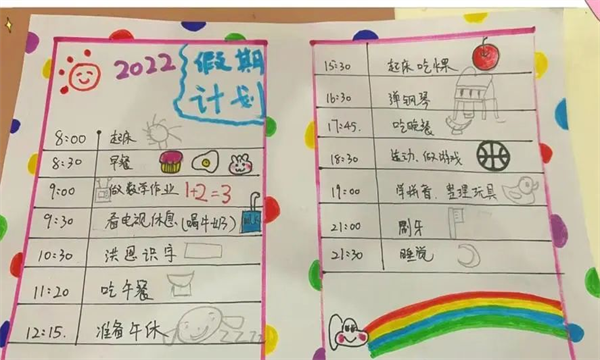 2022 假期
计划
8:00 起床
8:30 早餐
9:00 做数学作业 1+2=3
9:30 看电视休息(喝牛奶)
10:30 洪恩识字
11:20 吃午餐
12:15. 准备午休 zzzz
15:30 起床吃水果
16:30 弹钢琴
17:45. 吃晚餐
18:30 运动.做游戏
19:00 学拼音.整理玩具
21:00 刷牙
21:30 睡觉